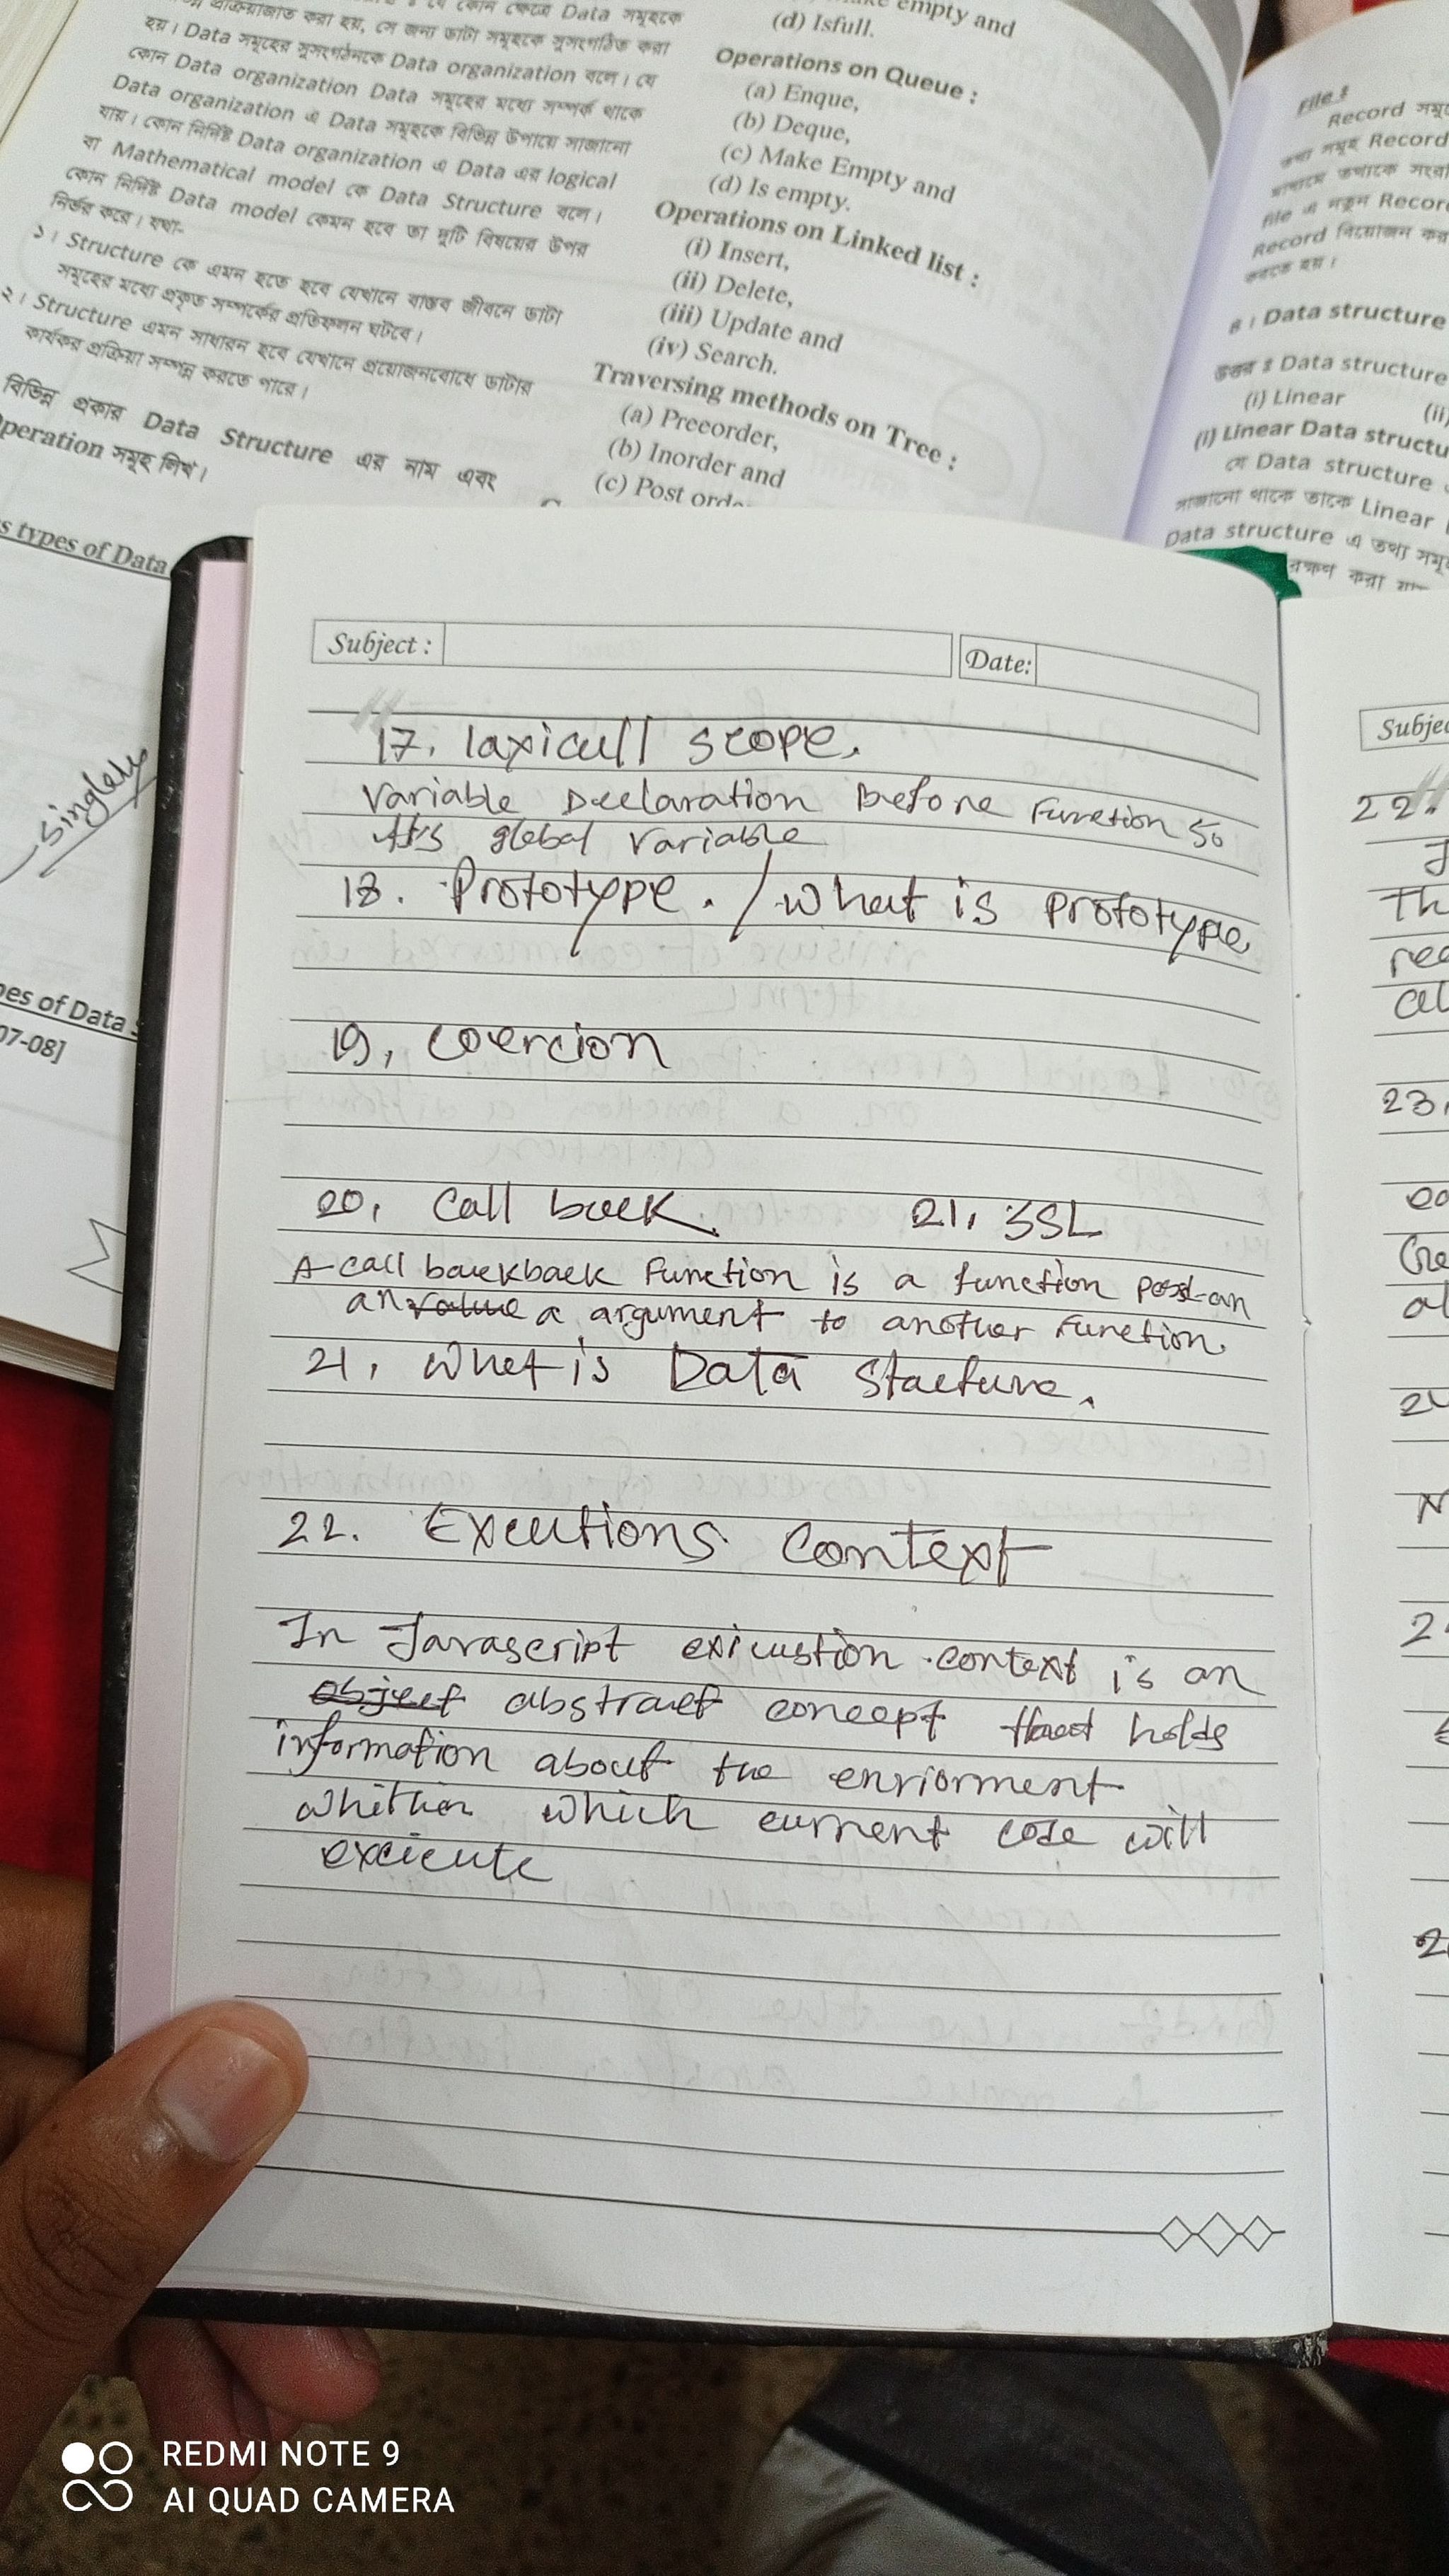 Data সমূহকে
প্রক্রিয়াজাত করা হয়, সে জন্য ডাটা সমূহকে সুসংগঠিত করা
হয়। Data সমূহের সুসংগঠনকে Data organization বলে। যে
কোন Data organization Data সমূহের মধ্যে সম্পর্ক থাকে
Data organization এ Data সমূহকে বিভিন্ন উপায়ে সাজানো
যায়। কোন নির্দিষ্ট Data organization এ Data এর logical
বা Mathematical model কে Data Structure বলে।
কোন নির্দিষ্ট Data model কেমন হবে তা দুটি বিষয়ের উপর
নির্ভর করে। যথা-
১। Structure কে এমন হতে হবে যেখানে বাস্তব জীবনে ডাটা
সমূহের মধ্যে প্রকৃত সম্পর্কের প্রতিফলন ঘটবে।
২। Structure এমন সাধারন হবে যেখানে প্রয়োজনবোধে ডাটার
কার্যকর প্রক্রিয়া সম্পন্ন করতে পারে।
বিভিন্ন প্রকার Data Structure এর নাম এবং
peration সমূহ লিখ।
empty and
(d) Isfull.
Operations on Queue :
(a) Enque,
(b) Deque,
(c) Make Empty and
(d) Is empty.
Operations on Linked list :
(i) Insert,
(ii) Delete,
(iii) Update and
(iv) Search.
Traversing methods on Tree :
(a) Preeorder,
(b) Inorder and
(c) Post orde
File ঃ
Record
সমূহ Record
file এ নতুন Recor
Record
করতে হয়।
৪। Data structure
উত্তর ঃ Data structure
(i) Linear (ii
(i) Linear Data structu
যে Data structure
সাজানো থাকে তাকে Linear
Data structure এ তথ্য
s types of Data
singlely
pes of Data
07-08]
Subject :
Date:
17. laxicull scope.
Variable Declaration Before Function so
it's global variable
18. Prototype. / what is prototype
19, coercion
20, Call back. 21, SSL
A call backback Function is a function
an value a argument to another Function.
21, What is Data Stacture.
22. Excutions Context
In Javascript exicustion context is an
object abstract concept that holds
information about the enriorment
whithin which current code will
excicute
Subje
22.
Th
rec
al
23,
N
REDMI NOTE 9
AI QUAD CAMERA